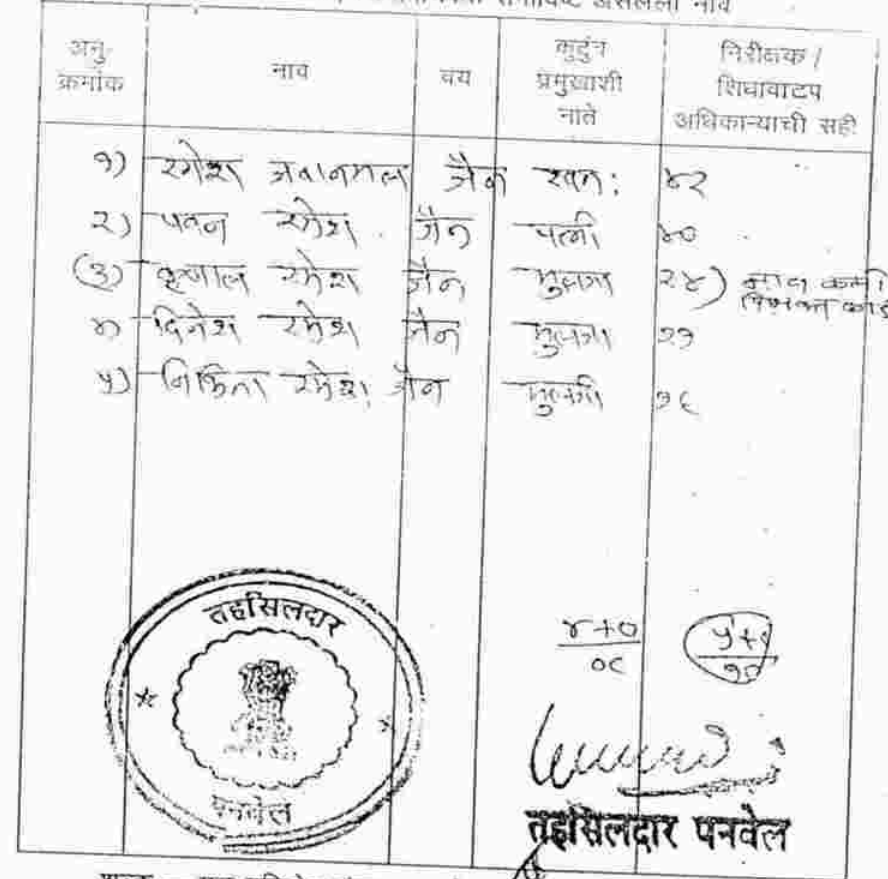 समाविष्ट असलेली नावे
अनु-
क्रमांक
नाव
वय
कुटुंब
प्रमुखाशी
नाते
निरीक्षक /
शिधावाटप
अधिकाऱ्याची सही
१) रमेश जवानमल जैन स्वतः ४२
२) पवन रमेश जैन पत्नी ४०
(३) कृणाल रमेश जैन मुलगा २४) नाव कमी
४) दिनेश रमेश जैन मुलगा २१
५) निकिता रमेश जैन मुलगी १६
तहसिलदार
पनवेल
४+०
०८
५+०
१०
तहसिलदार पनवेल